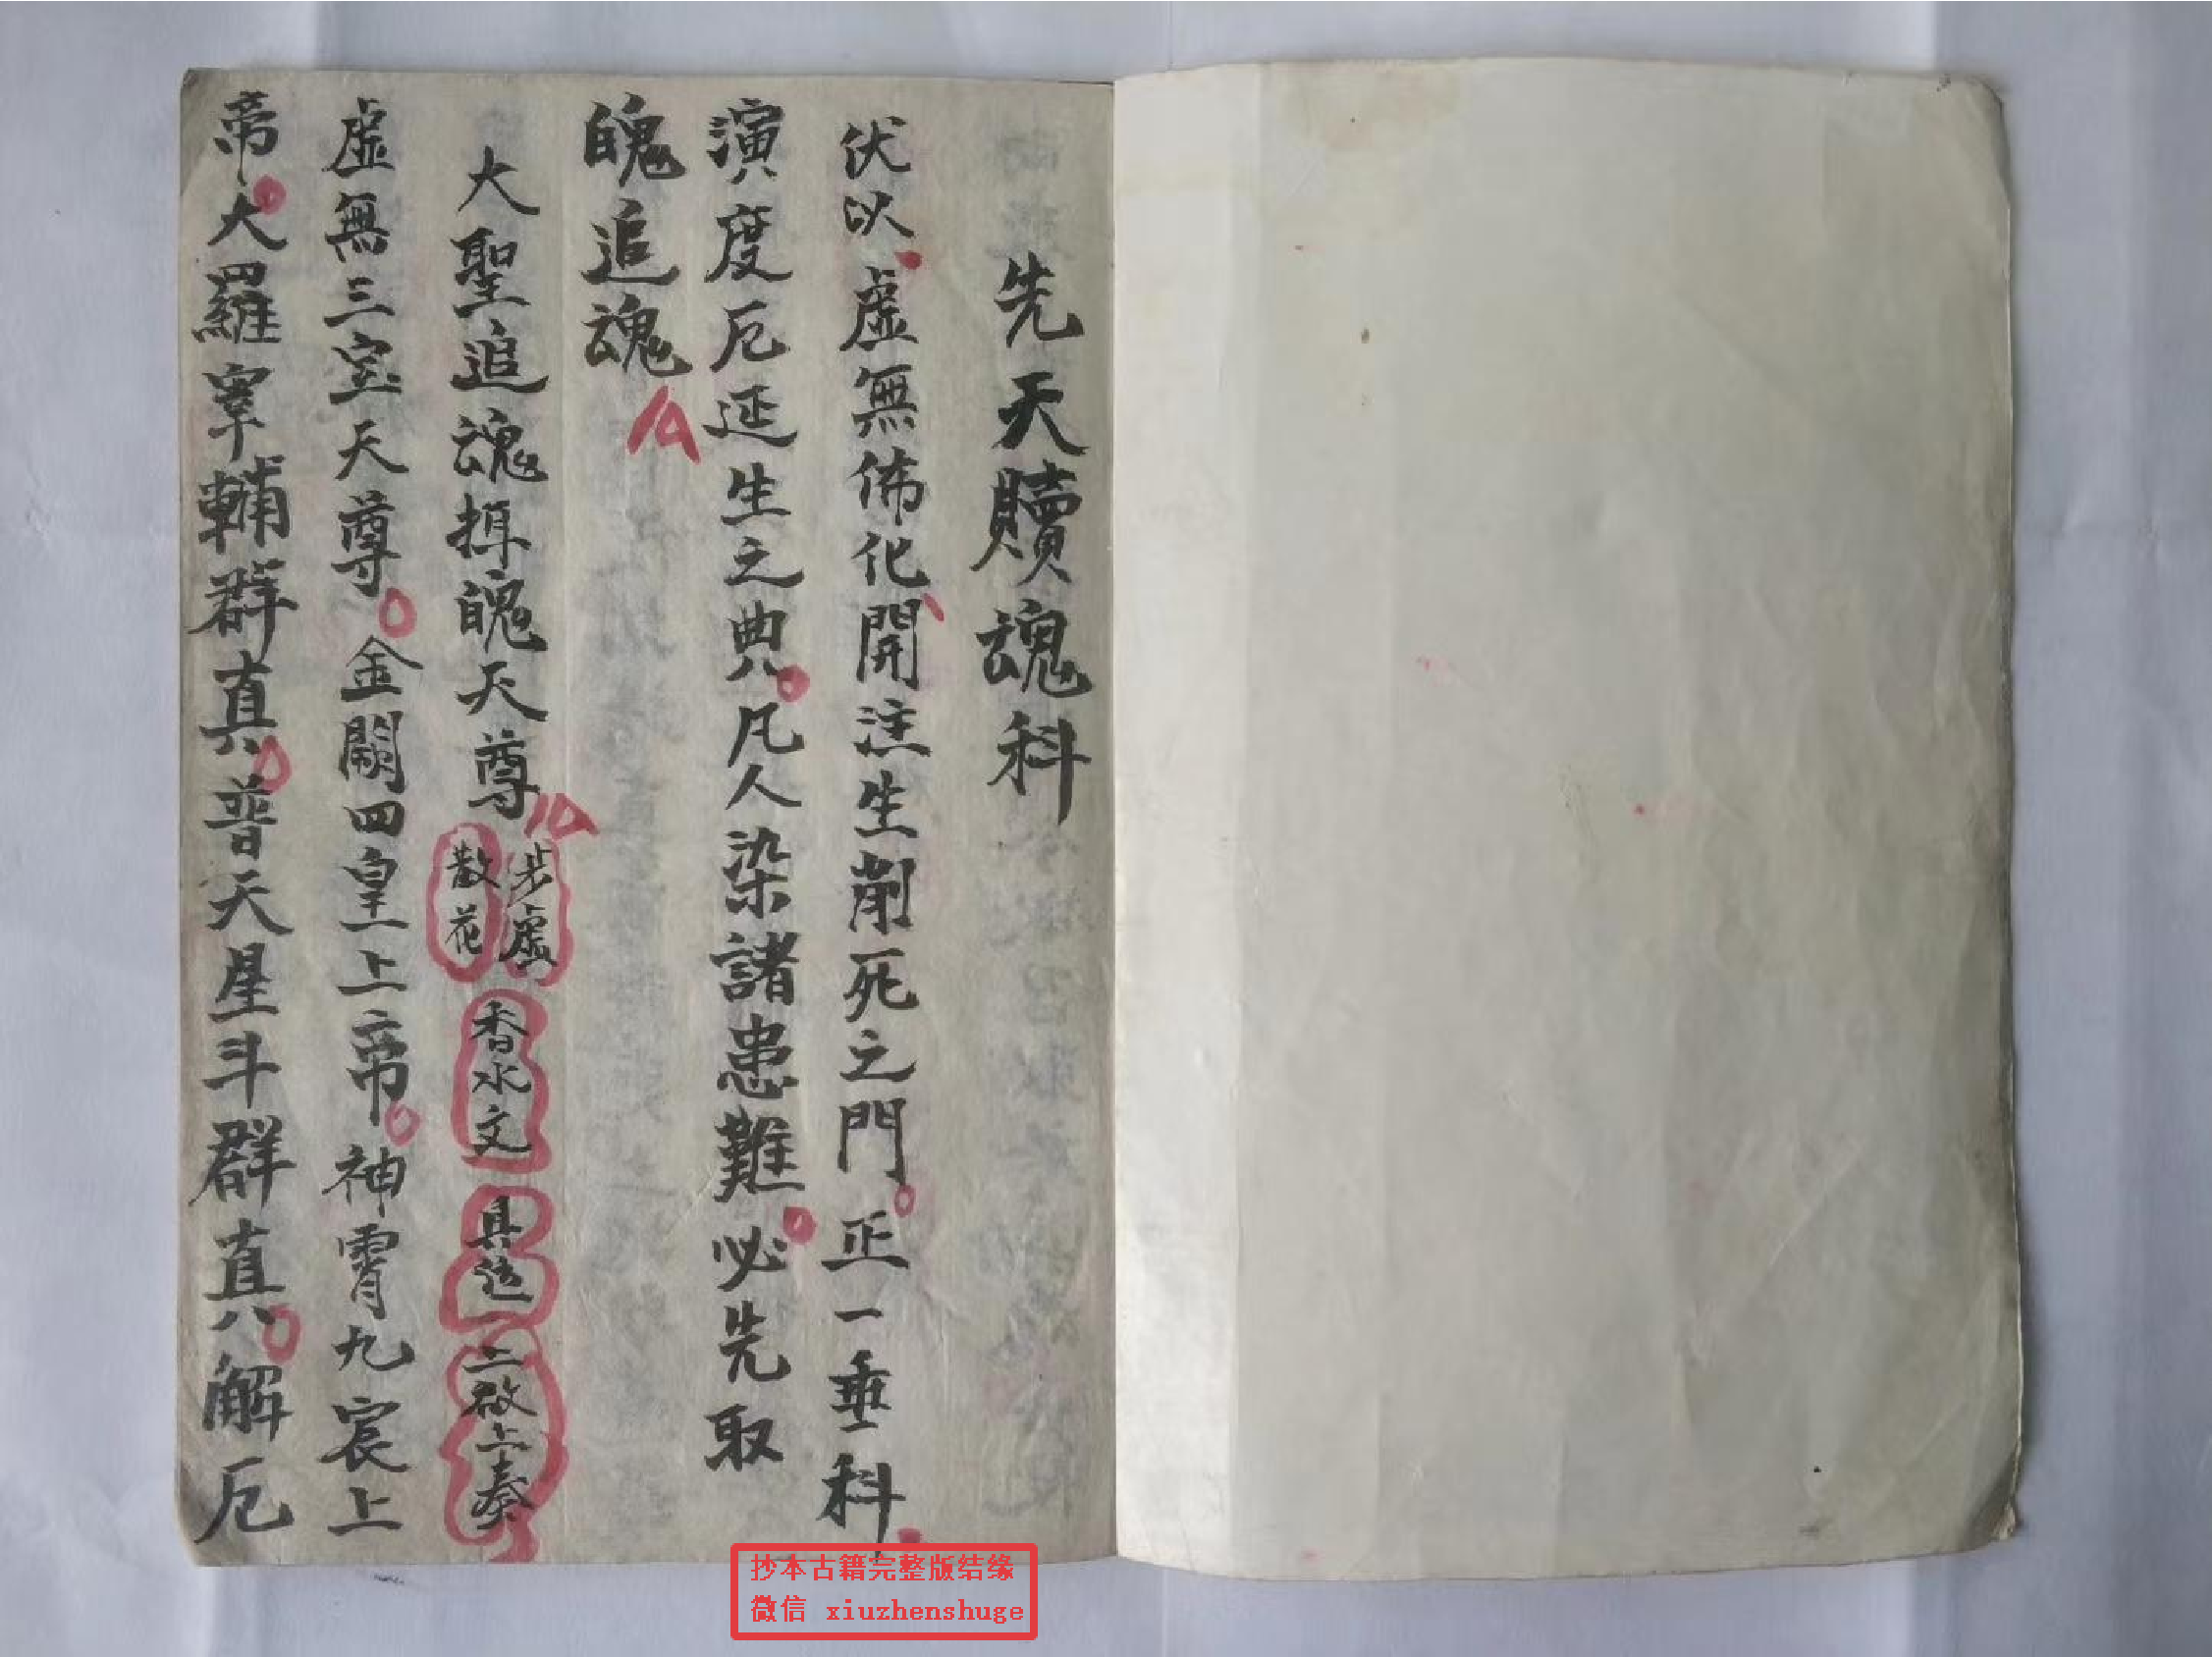 先天贖魂科
伏以虛無佈化開注生削死之門正一垂科
演度厄延生之典凡人染諸患難必先取
魄追魂
大聖追魂攝魄天尊 步虛 散花 香水文 具送 二啟上奏
虛無三宝天尊金闕四皇上帝神霄九宸上
帝大羅宰輔群真普天星斗群真解厄
抄本古籍完整版结缘
微信 xiuzhenshuge